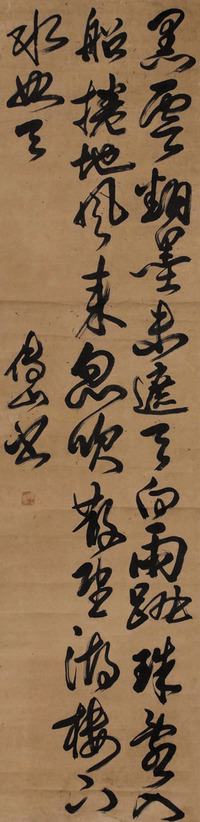 黑雲翻墨未遮天白雨跳珠亂入
船捲地風來忽吹散望湖樓下
水如天
傅山書